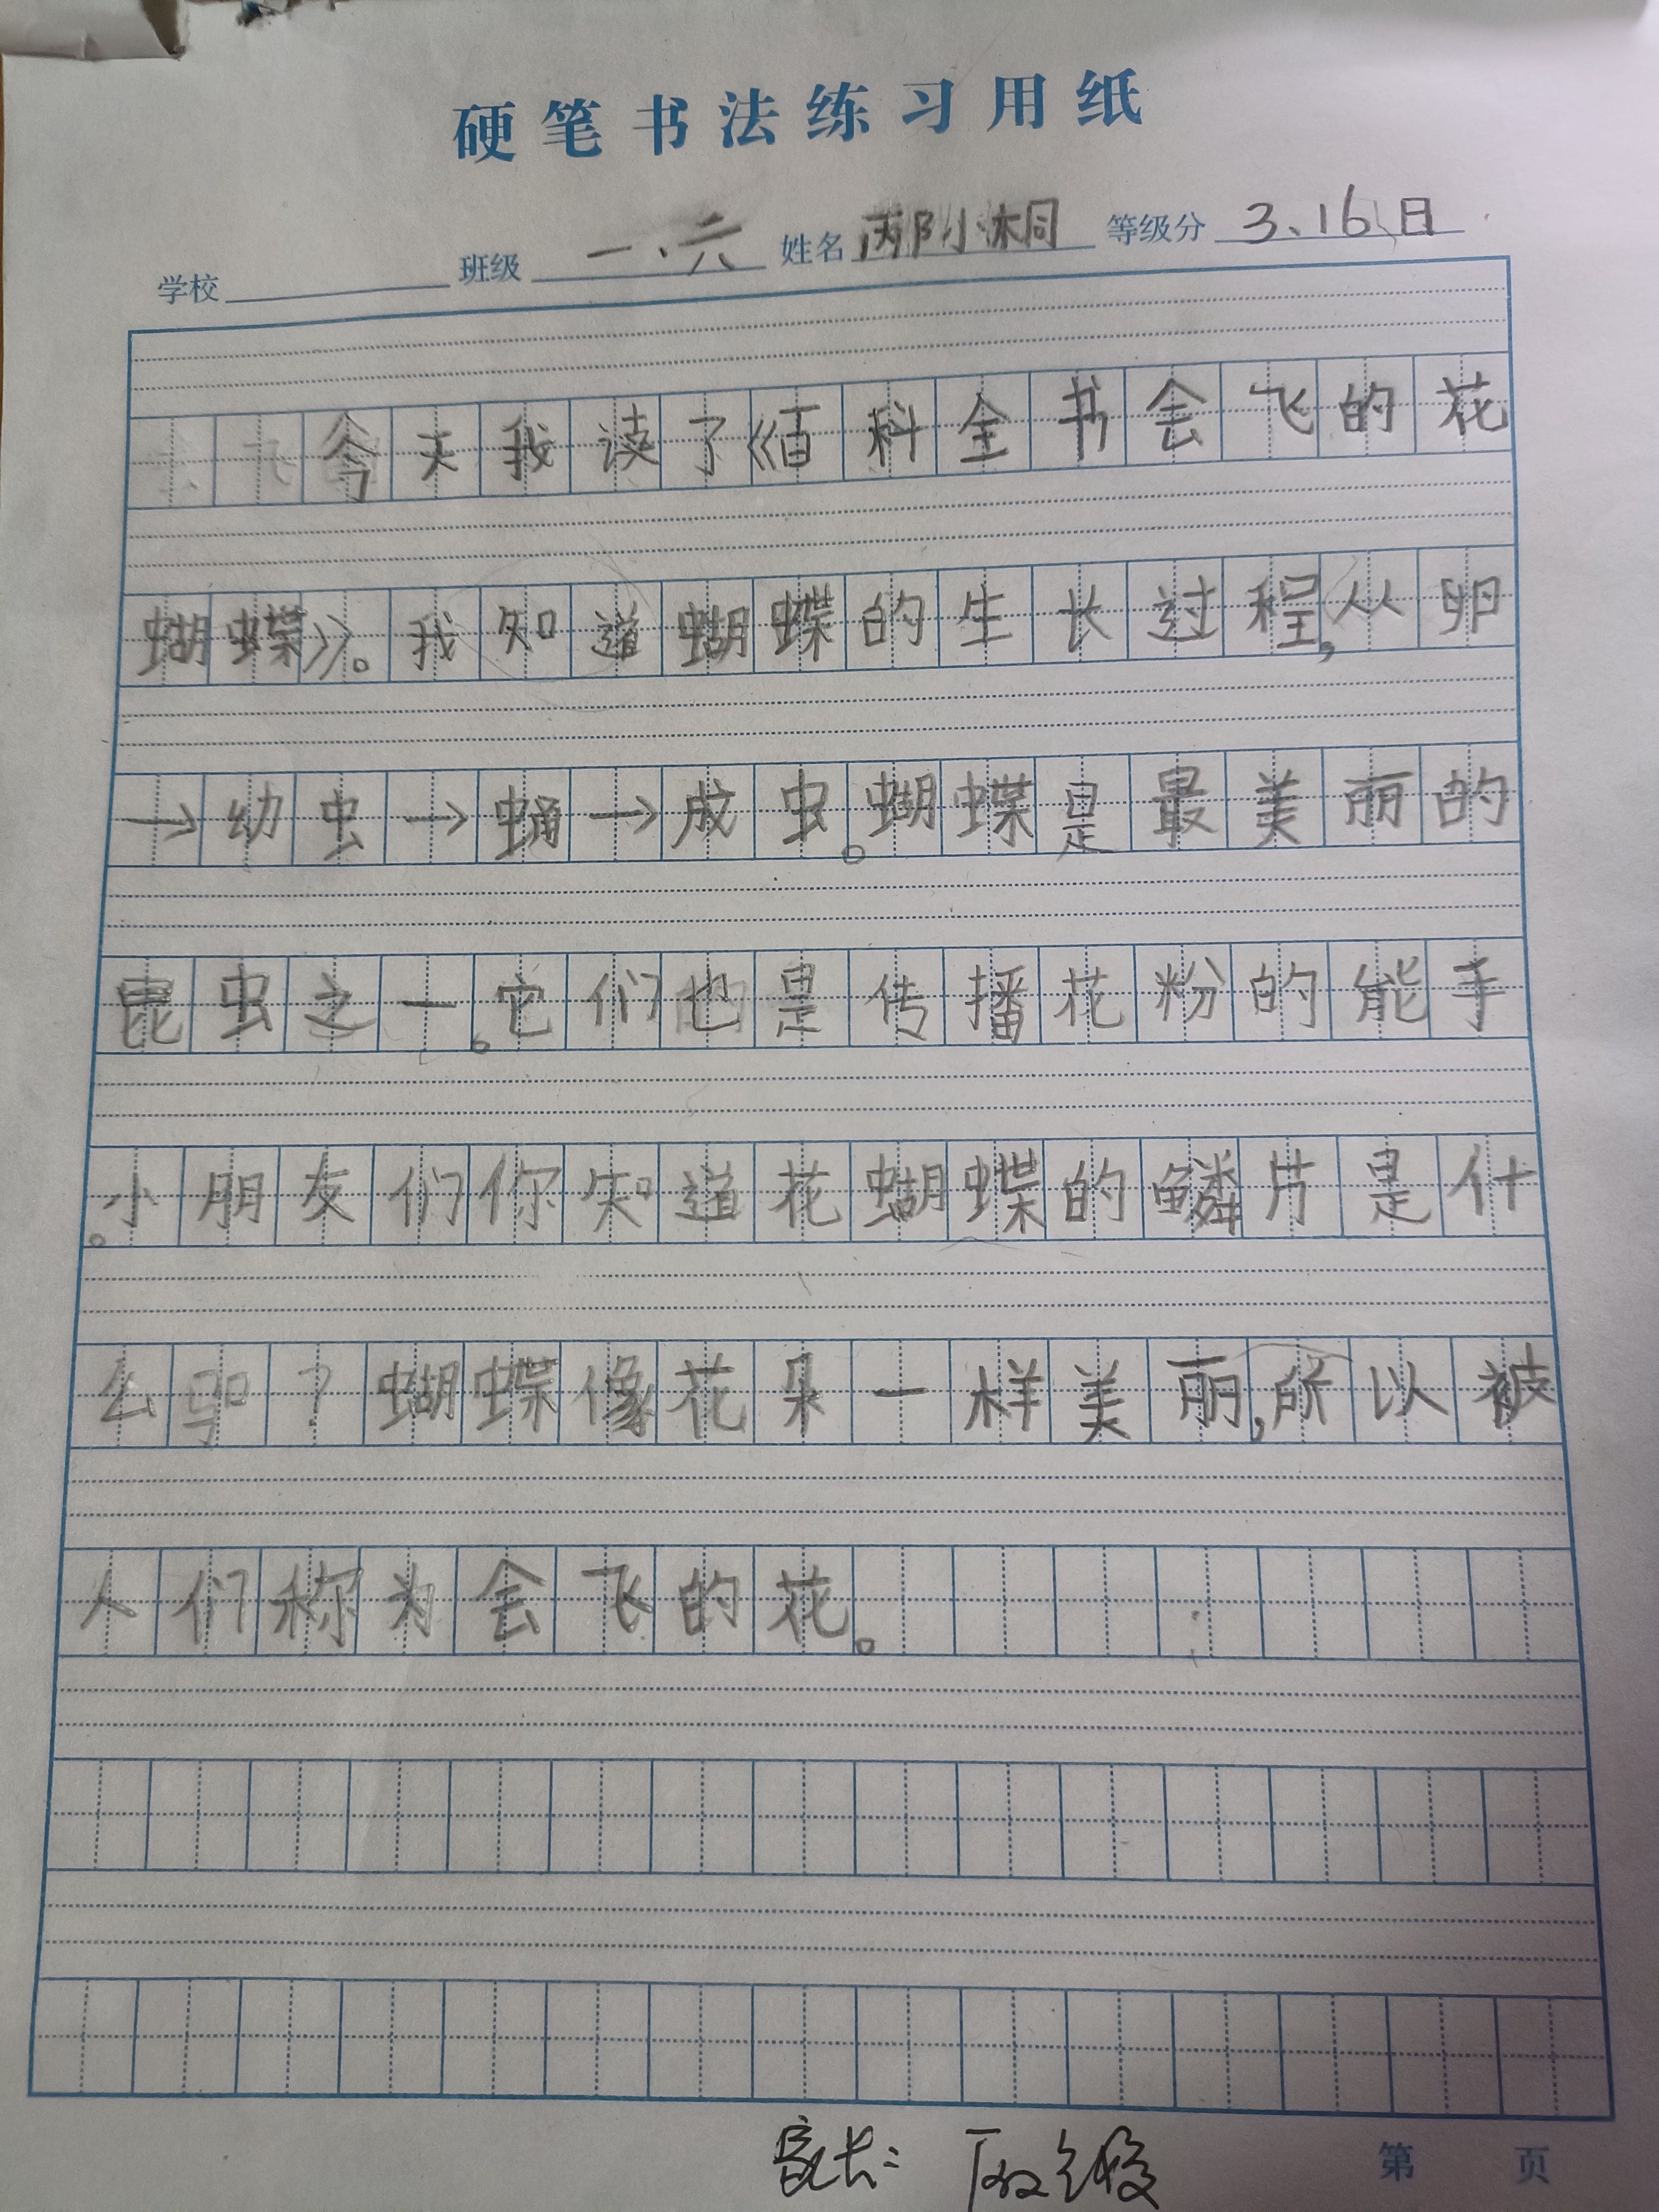 硬笔书法练习用纸
学校 班级 一、六 姓名 邴小桐 等级分 3、16日
今天我读了《百科全书会飞的花
蝴蝶》。我知道蝴蝶的生长过程,从卵
→幼虫→蛹→成虫。蝴蝶是最美丽的
昆虫之一。它们也是传播花粉的能手
。小朋友们你知道花蝴蝶的鳞片是什
么吗?蝴蝶像花朵一样美丽,所以被
人们称为会飞的花。
家长:
第 页